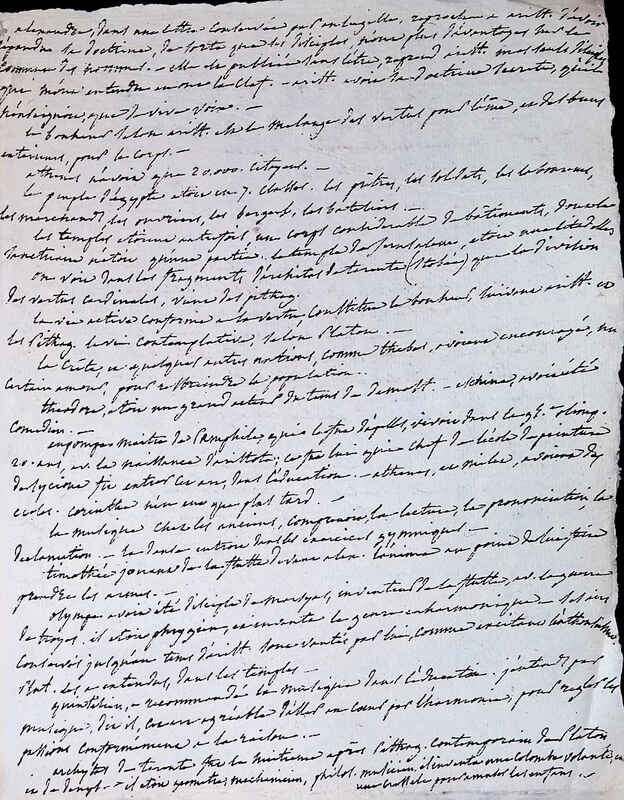 alexandre, dans une lettre conservée par aulugelle, reproche a arist. d'avoir
répandu sa doctrine, de sorte que ses disciples, n'ont plus d'avantages sur le
commun des hommes. - elle est publiée sans l'être, repond arist. mes seuls disciples
que m'ont entendu en ont la clef. - arist. avoit sa doctrine secrete, qu'il
n'enseignoit, que de vive voix. -
le bonheur selon arist. est le melange des vertus pour l'âme, et des biens
exterieurs, pour le corps. -
athenes n'avoit que 20.000. citoyens. -
le peuple d'égypte etoit en 7. classes. les prêtres, les soldats, les laboureurs,
les marchands, les ouvriers, les bergers, les bateliers. -
les temples etoient autrefois, un corps considerable de bâtiments, dont le
sanctuaire n'etoit qu'une partie. le temple de etoit une
on voit dans les fragments d'architas de tarente (Stobée) que la division
des vertus cardinales, vient des pithag.
la vie active conforme a la vertu, constitue le bonheur, suivant arist. et
les Pithag. la vie contemplative, selon Platon. -
la Crête, et quelques autres nations, comme thebes, avoient encouragé, un
certain amour, pour restreindre la population. -
theodore, etoit un grand acteur du tems de demost. - eschine, avoit été
comedien. -
maitre de Pamphile, qui le fut d'apelle, vivoit dans la olimp.
20. ans, av. la naissance d'aristote; ce fut lui qui chef de l'école de peinture
de sycione fit entrer cet art, dans l'éducation. - athenes, et milet, avoient des
ecoles. corinthe n'en eut que plus tard. -
la musique chez les anciens, comprenoit, la lecture, la prononciation, la
declamation. - la danse entroit dans les exercices gymniques. -
timothée jouant de la flutte devant alex. l'anima au point de lui faire
prendre les armes. -
olympe avoit été disciple de Marsyas, inventeur de la flutte, av. la guerre
de troyes. il etoit phrygien, et inventa le genre enharmonique - ses airs
conservés jusqu'au tems d'arist. sont vantés par lui, comme excitant l'enthousiasme.
Plut. les a entendus, dans les temples. -
quintilien, a recommandé la musique dans l'éducation. j'entends par
musique, dit il, cet art agreable d'aller au coeur par l'harmonie, pour regler les
passions conformement a la raison. -
archytas de tarente fut le huitieme après Pithag. contemporain de Platon
et de denys. - il etoit geometre, mechanicien, philos. musicien. il inventa une Colombe volante, et
une pour amuser les enfans. -